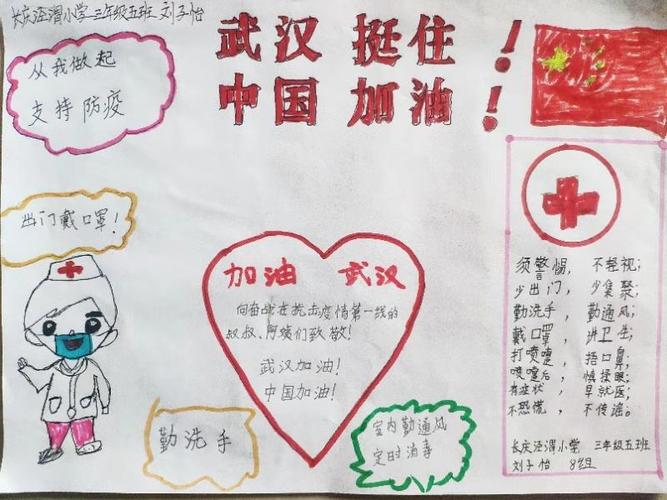 长庆泾渭小学 三年级五班 刘子怡
武汉 挺住！
中国 加油！
从我做起
支持防疫
出门戴口罩！
加油 武汉
向奋战在抗击疫情第一线的
叔叔、阿姨们致敬！
武汉加油！
中国加油！
勤洗手
室内勤通风
定时消毒
须警惕，不轻视；
少出门，少集聚；
勤洗手，勤通风；
戴口罩，讲卫生；
打喷嚏，捂口鼻；
喷嚏后，慎揉眼；
有症状，早就医；
不恐慌，不传谣。
长庆泾渭小学 三年级五班
刘子怡 8组